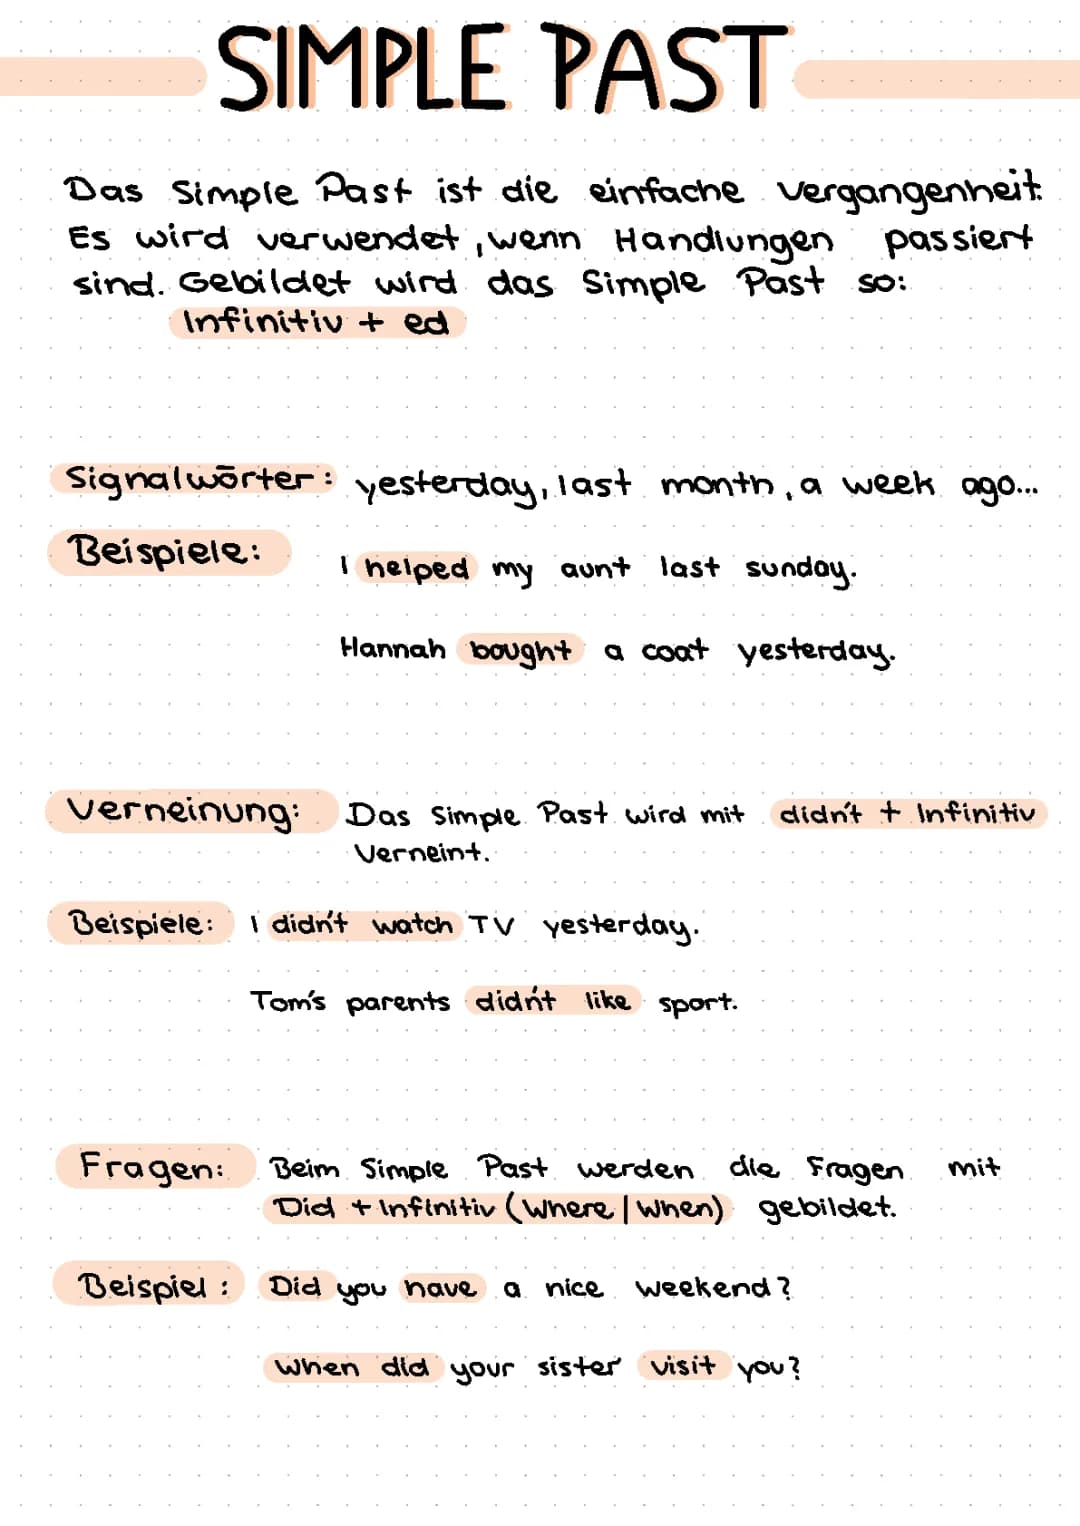 SIMPLE PAST
Das Simple Past ist die einfache Vergangenheit.
Es wird verwendet, wenn Handlungen passiert
sind. Gebildet wird das Simple Past so:
Infinitiv + ed
Signalwörter: yesterday, last month, a week ago...
Beispiele: I helped my aunt last sunday.
Hannah bought a coat yesterday.
Verneinung: Das Simple Past wird mit didn't + Infinitiv
Verneint.
Beispiele: I didn't watch TV yesterday.
Tom's parents didn't like sport.
Fragen: Beim Simple Past werden die Fragen mit
Did + Infinitiv (Where | When) gebildet.
Beispiel: Did you have a nice weekend?
When did your sister visit you?